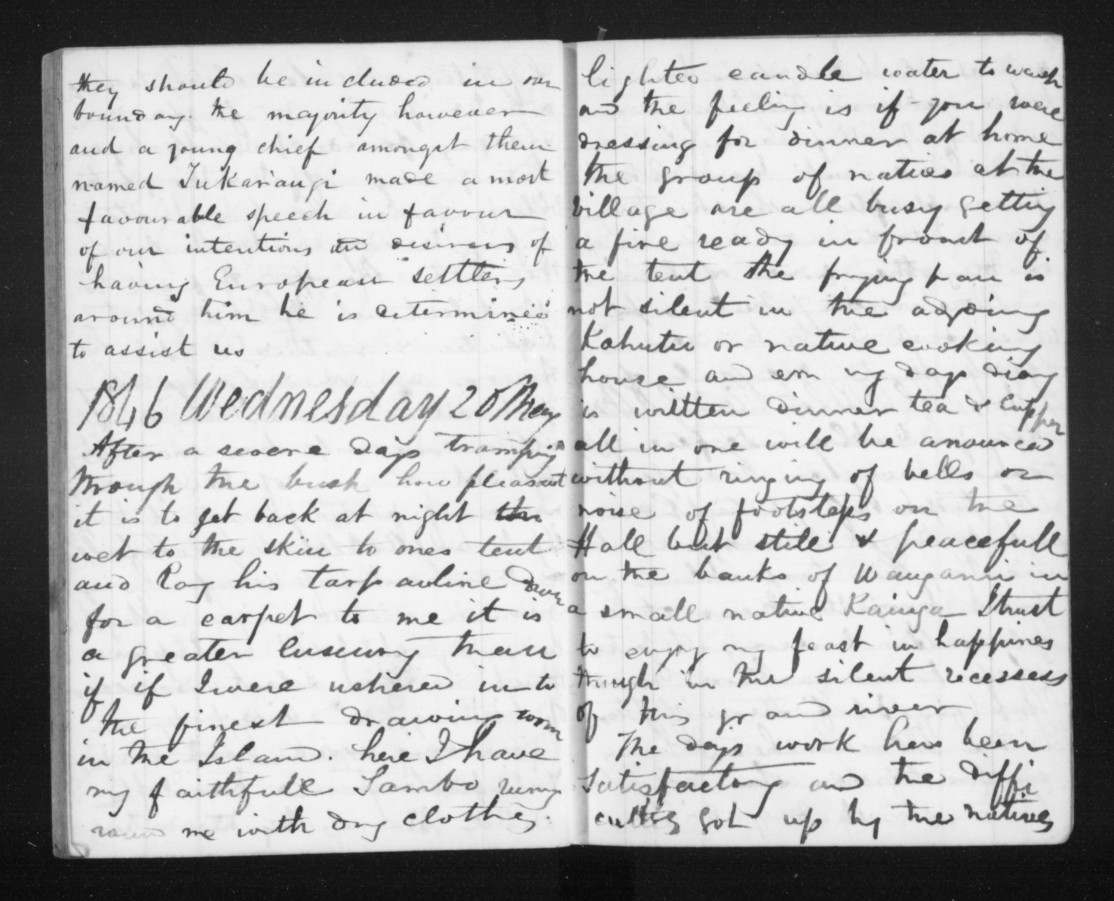 they should be included in our
boundary. the majority however
and a young chief amongst them
named Tukarangi made a most
favourable speech in favour
of our intentions and desirous of
having European settlers
around him he is determined
to assist us
1846 Wednesday 20 May
After a severe days tramping
through the bush how pleasant
it is to get back at night
wet to the skin to ones tent
and lay his tarpauline down
for a carpet to me it is
a greater luxury than
if if I were ushered in to
the finest drawing room
in the Island. here I have
my faithfull Sambo runing
round me with dry clothes.
lighted candle water to wash
and the feeling is if you were
dressing for dinner at home
the group of naties at the
village are all busy getting
a fire ready in front of
the tent the frying pan is
not silent in the adjoing
Kahutu or native cooking
house and ere my days diary
is written dinner tea & supper
all in one will be anounced
without ringing of bells or
noise of footsteps on the
Hall but still & peacefull
on the banks of Wanganui in
a small native Kainga I trust
to enjoy my feast in happines
though in the silent recessess
of this grand river
The days work has been
satisfactory and the diffi
culties got up by the natives